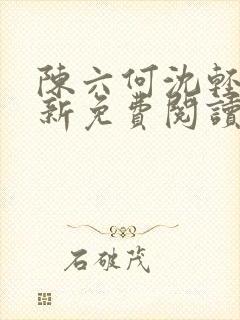 陳六何沈輕
新免費閱讀
石破茂